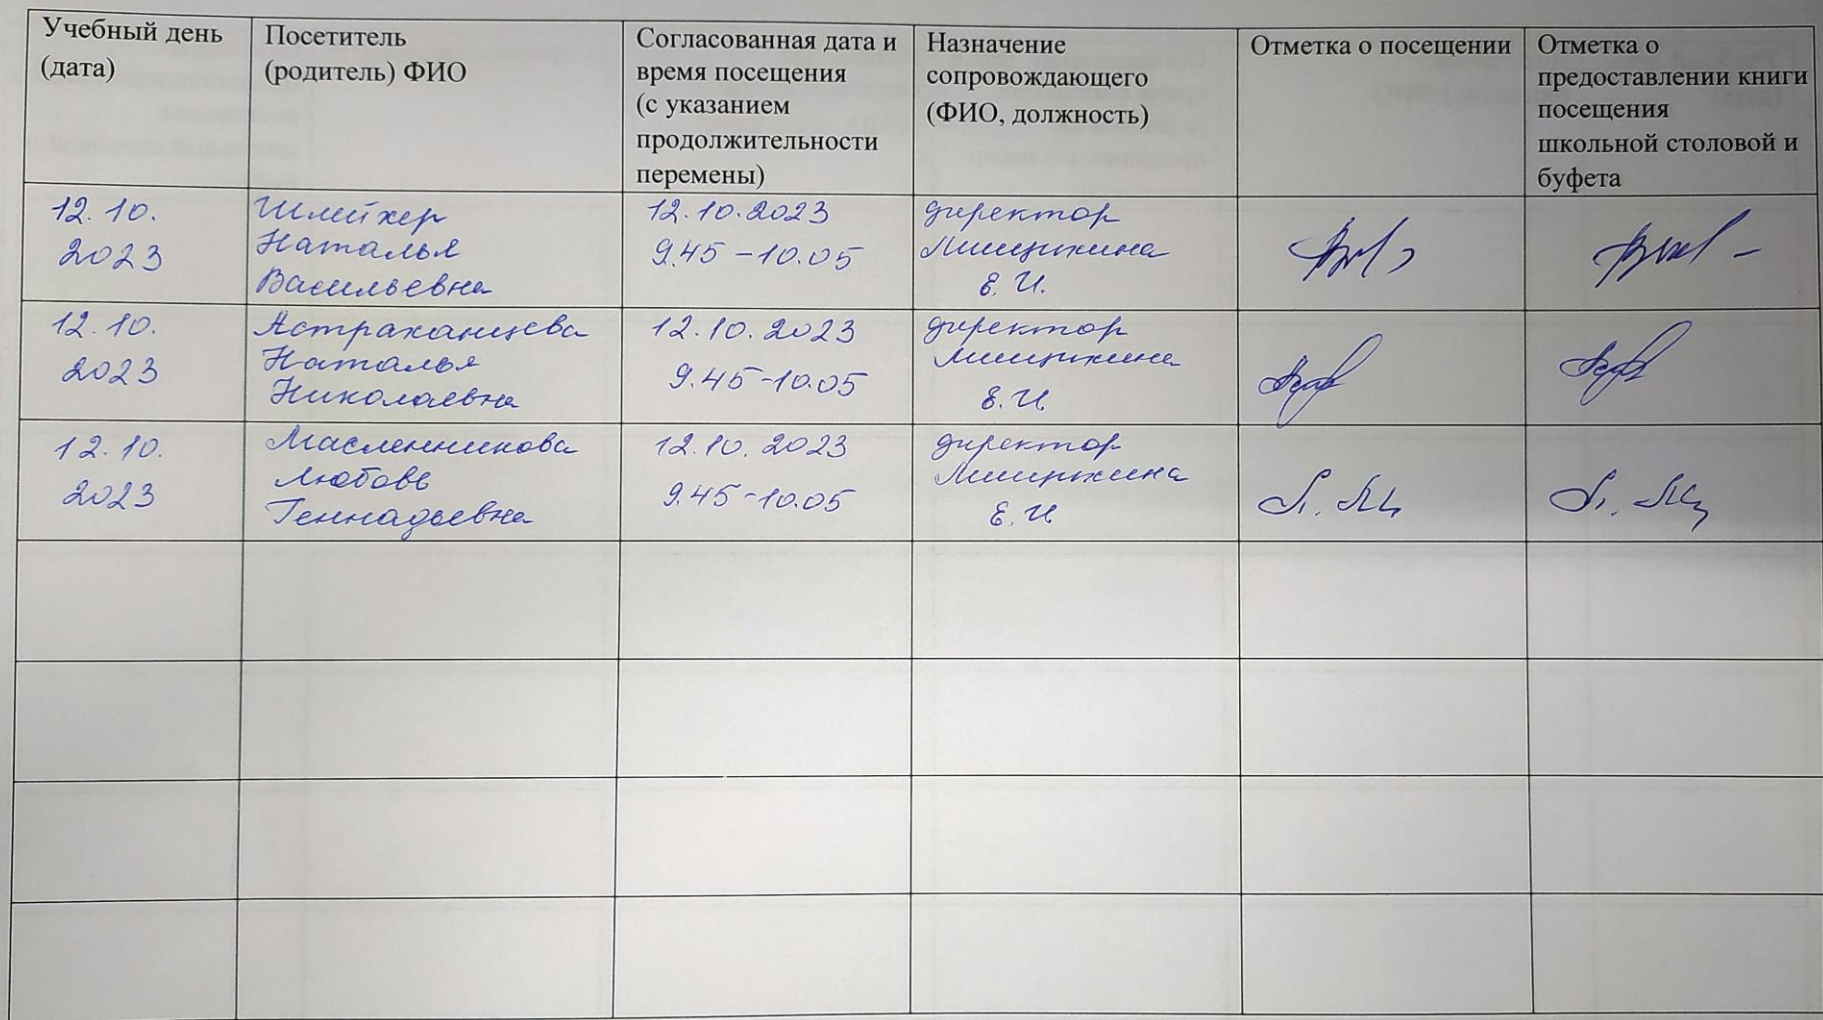 Учебный день
(дата)
Посетитель
(родитель) ФИО
Согласованная дата и
время посещения
(с указанием
продолжительности
перемены)
Назначение
сопровождающего
(ФИО, должность)
Отметка о посещении
Отметка о
предоставлении книги
посещения
школьной столовой и
буфета
12.10.
2023
Шлейхер
Наталья
Васильевна
12.10.2023
9.45-10.05
директор
Е.И.
12.10.
2023
Астраханцева
Наталья
Николаевна
12.10.2023
9.45-10.05
директор
Е.И.
12.10.
2023
Масленникова
Любовь
Геннадьевна
12.10.2023
9.45-10.05
директор
Е.И.